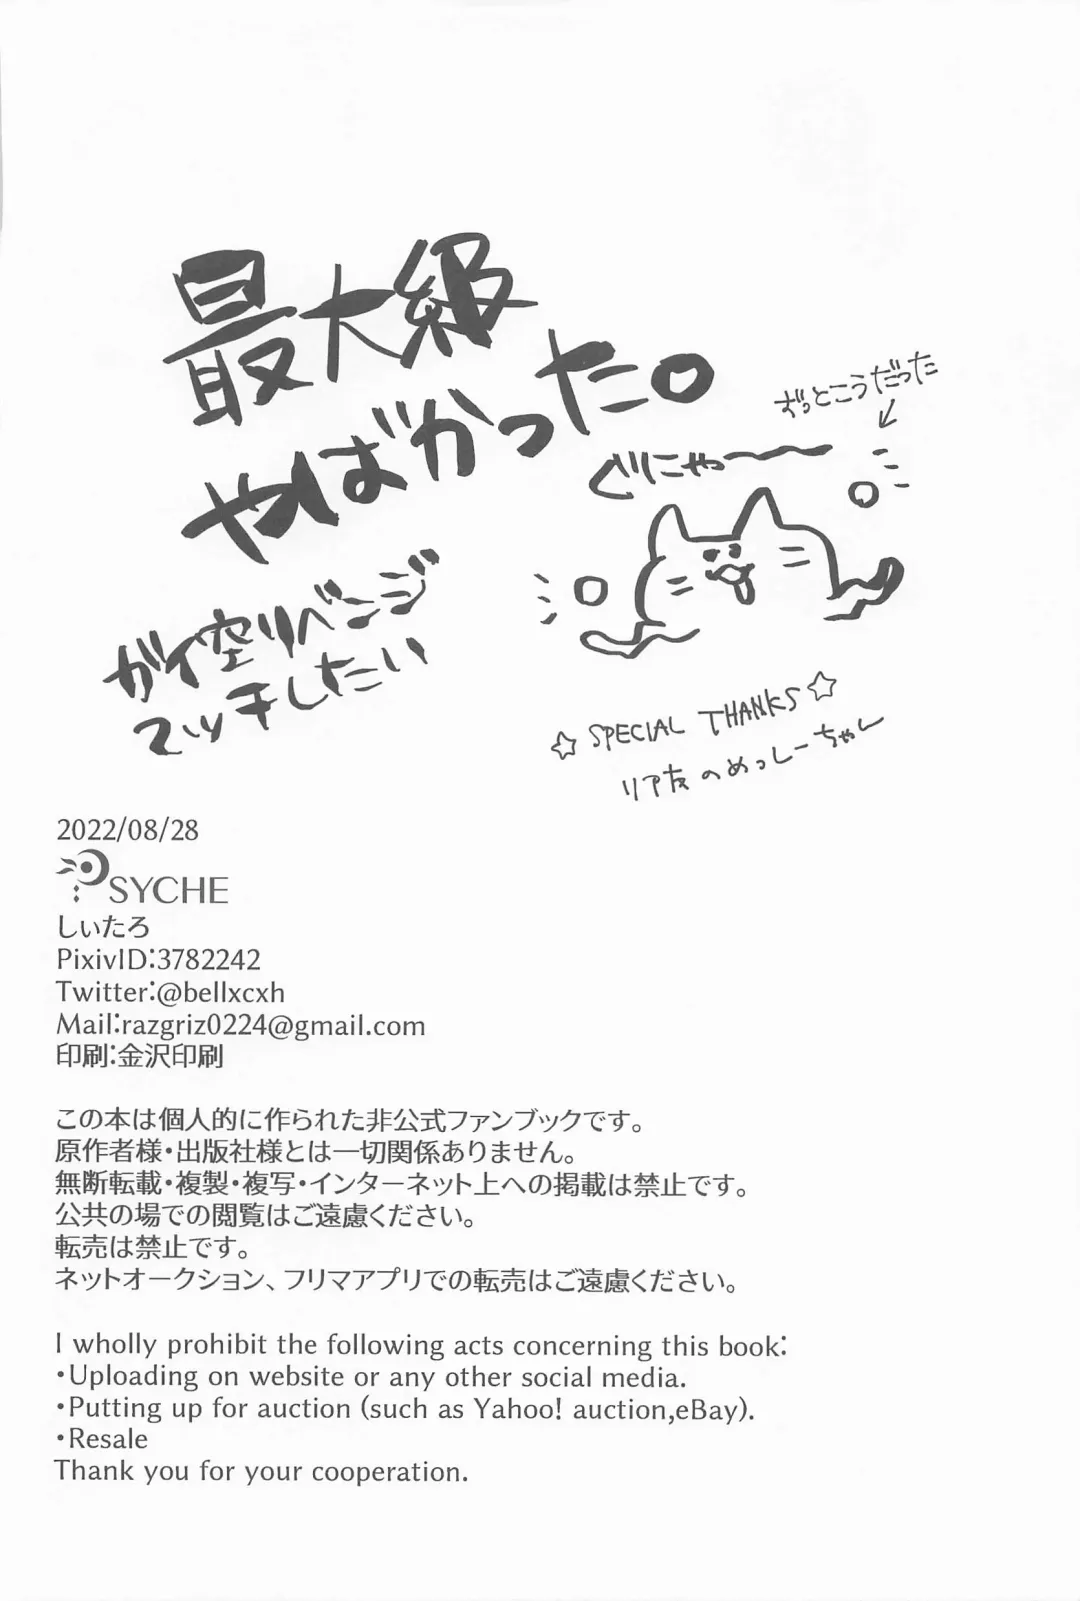 最大級
やばかった。
ずっとこうだった
ぐにゃっ〜〜
ガイ空リベンジ
マッチしたい
☆ SPECIAL THANKS ☆
リア友のめっしーちゃん
2022/08/28
PSYCHE
しぃたろ
PixivID:3782242
Twitter:@bellxcxh
Mail:razgriz0224@gmail.com
印刷:金沢印刷
この本は個人的に作られた非公式ファンブックです。
原作者様・出版社様とは一切関係ありません。
無断転載・複製・複写・インターネット上への掲載は禁止です。
公共の場での閲覧はご遠慮ください。
転売は禁止です。
ネットオークション、フリマアプリでの転売はご遠慮ください。
I wholly prohibit the following acts concerning this book:
・Uploading on website or any other social media.
・Putting up for auction (such as Yahoo! auction,eBay).
・Resale
Thank you for your cooperation.